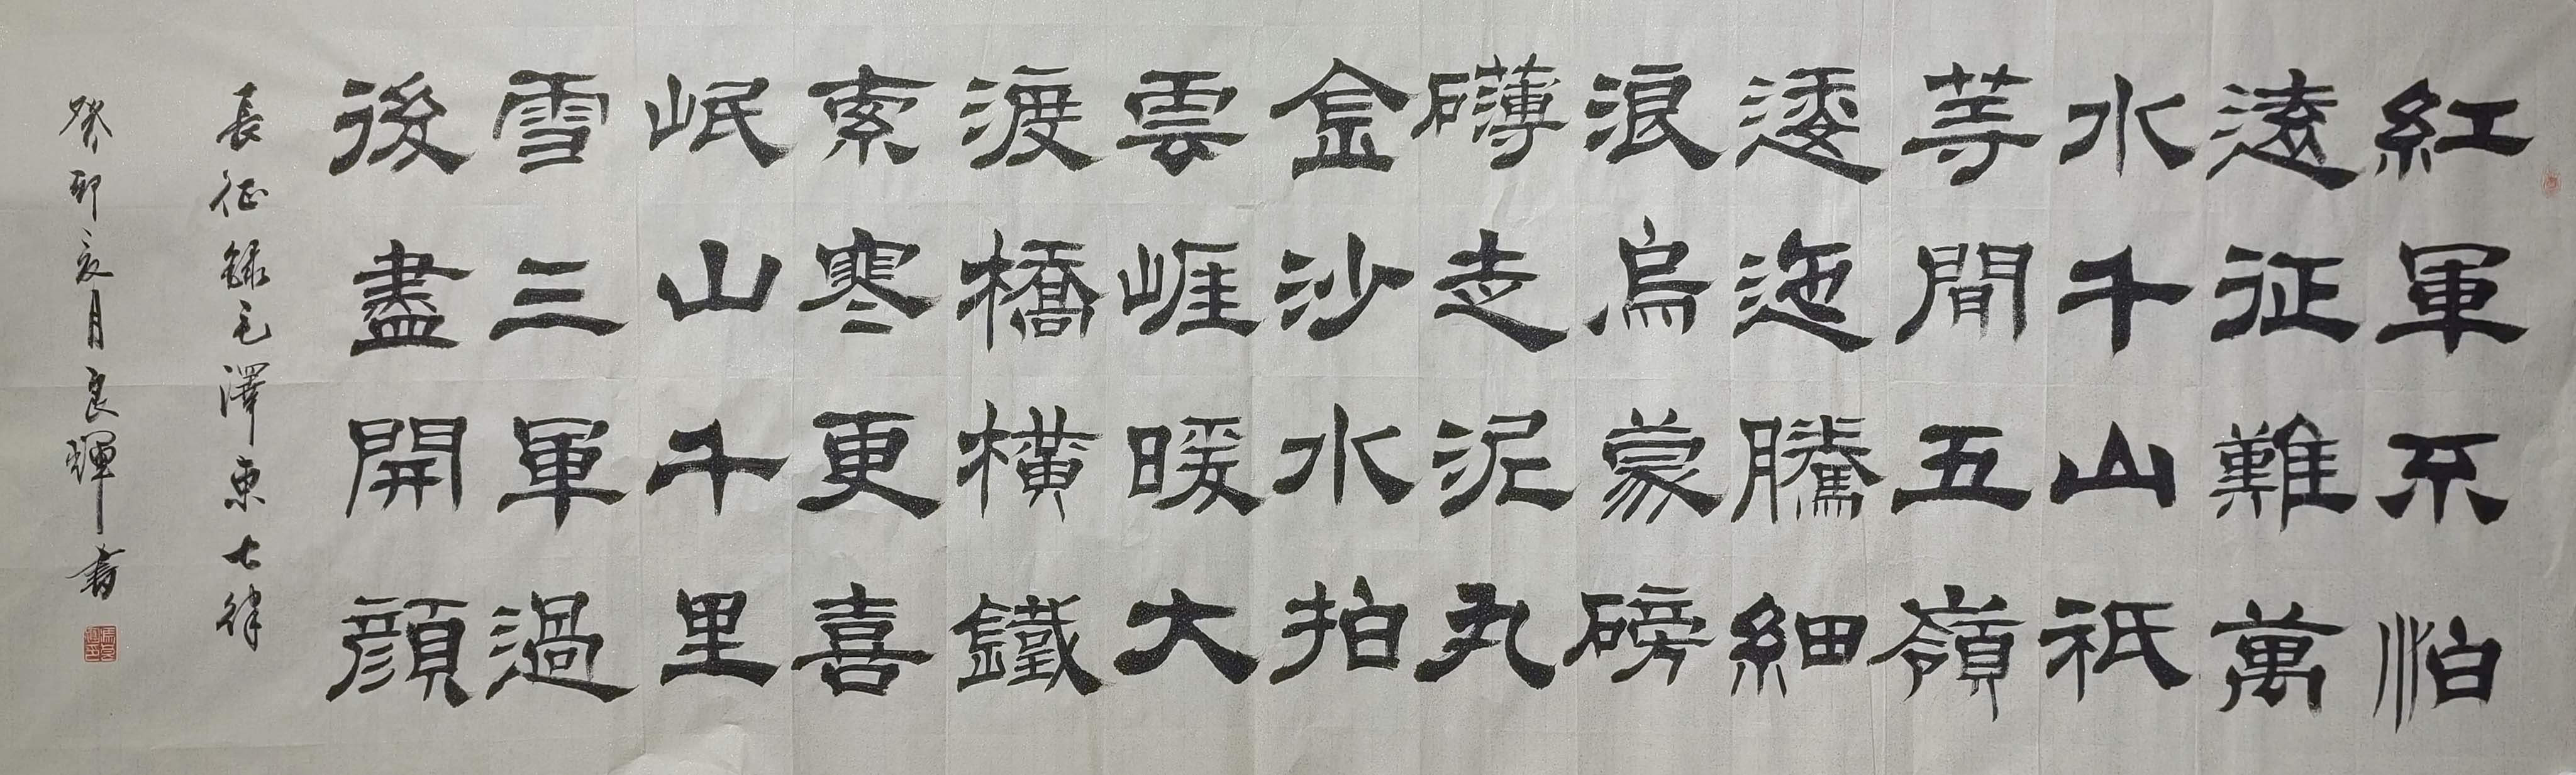 紅軍不怕
遠征難萬
水千山祇
等間五嶺
逶迤騰細
浪烏蒙磅
礴走泥丸
金沙水拍
雲崖暖大
渡橋橫鐵
索寒更喜
岷山千里
雪三軍過
後盡開顔
長征錄毛澤東七律
癸卯亥月良輝書